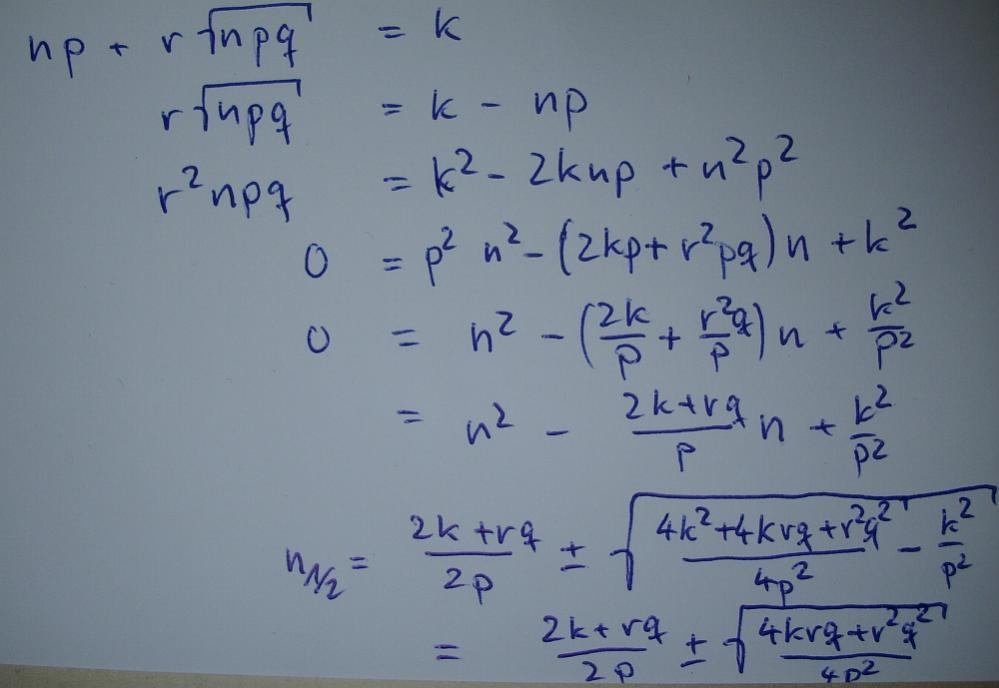 np + r√(npq) = k
r√(npq) = k - np
r²npq = k² - 2knp + n²p²
0 = p² n² - (2kp + r²pq) n + k²
0 = n² - (2k/p + r²q/p) n + k²/p²
= n² - (2k+rq)/p n + k²/p²
n₁/₂ = (2k+rq)/2p ± √((4k²+4krq+r²q²)/4p² - k²/p²)
= (2k+rq)/2p ± √((4krq+r²q²)/4p²)